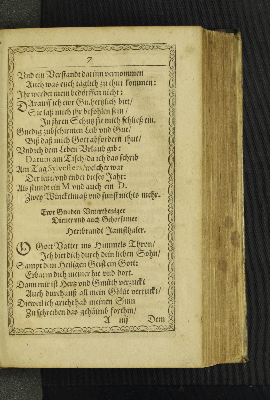 7
Vnd ein Verstandt darinn vernommen
Auch was euch täglich zu thut kommen:
Ihr werdet mein bedörffen nicht:
Darauff ich ewr Gn. hertzlich bitt/
Sie laß mich ihr befohlen sein /
In ihren Schutz sie mich schließ ein.
Gnedig zubschirmen Leib vnd Gut/
Biß daß mich Gott abfordern thut/
Vnd ich dem Leben Vrlaub gib:
Datum am Tisch/ da ich das schrib
Am Tag Sylvesters/ welcher war
Der letzt/ vnd endet dieses Jahr:
Als stundt ein M vnd auch ein D.
Zwey Winckelmaß vnd sunst nichts mehr.
Ewr Gnaden Vnterthäniger
Diener vnd auch Gehorsamer
O Gott Vatter ins Himmels Thron/
Ich bitt dich durch dein lieben Sohn/
Sampt dem Heiligen Geist ein Gott:
Erbarm dich meiner hie vnd dort.
Damit mir ist Hertz vnd Gmüth verzuckt
Auch durchauß all mein Glider verruckt/
Dieweil ich gericht hab meinen Sinn
Zu schreiben das
A iiij Dem